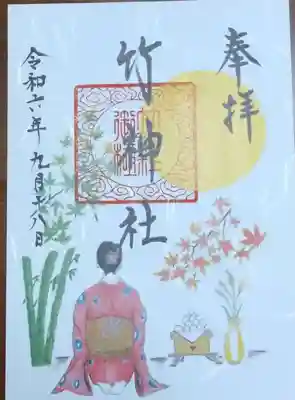 奉拝
竹神社
令和六年九月十八日